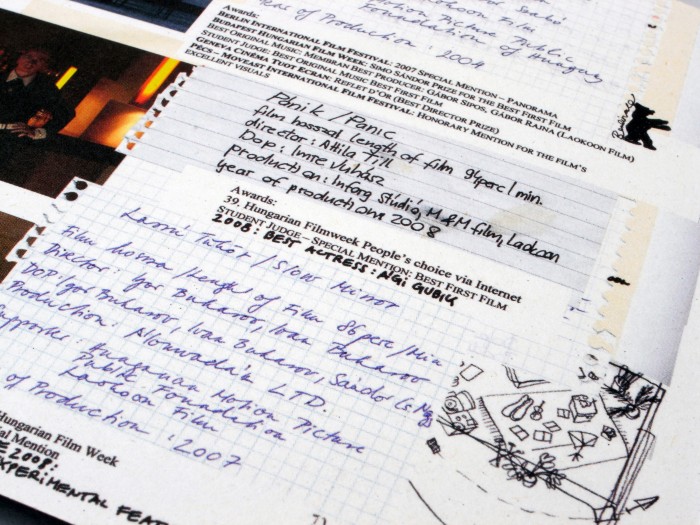 Motion Picture Public
Foundation of Hungary
Year of Production : 2004
Awards:
BERLIN INTERNATIONAL FILM FESTIVAL: 2007 SPECIAL MENTION – PANORAMA
BUDAPEST HUNGARIAN FILM WEEK: SIMO SÁNDOR PRIZE FOR THE BEST FIRST FILM
BEST ORIGINAL MUSIC: MEMBRAN BEST PRODUCER: GÁBOR SIPOS, GÁBOR RAJNA (LAOKOON FILM)
STUDENT JUDGE: BEST ORIGINAL MUSIC BEST FIRST FILM
GENEVA CINÉMA TOUT ECRAN: REFLET D'OR (BEST DIRECTOR PRIZE)
PÉCS – MOVEAST INTERNATIONAL FILM FESTIVAL: HONORARY MENTION FOR THE FILM'S
EXCELLENT VISUALS
Pánik / Panic
film hossza/ length of film 94perc / min.
director: Attila Till
Dop: Imre Juhász
production: Inforg Stúdió, M&M film, Laokoon
year of production: 2008
Awards:
39. Hungarian Filmweek People's choice via Internet
STUDENT JUDGE – SPECIAL MENTION; BEST FIRST FILM
2008: BEST ACTRESS: NGI GUBIK
Lassú Tükör / Slow Mirror
Film hossza / length of Film 86perc / Min
Director: Igor Buharov, Ivan Buharov
DOP: Igor Buharov, Ivan Buharov, Sándor
Production: Nomwada'n LTD.
Hungarian Motion Picture
Public Foundation
Laokoon Film
of Production : 2007
Hungarian Film Week
Mention
2008:
EXPERIMENTAL